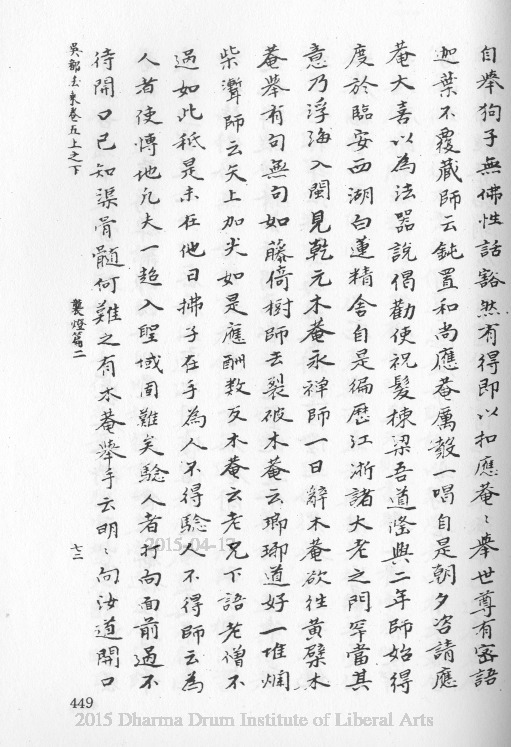 自舉狗子無佛性話豁然有得即以扣應菴〻舉世尊有密語
迦葉不覆藏師云鈍置和尚應菴厲聲一喝自是朝夕咨請應
菴大喜以為法器說偈勸使祝髮棟梁吾道隆興二年師始得
度於臨安西湖白蓮精舍自是徧歷江浙諸大老之門罕當其
意乃浮海入閩見乾元木菴永禪師一日辭木菴欲往黃檗木
菴舉有句無句如藤倚樹師云裂破木菴云瑯琊道好一堆爛
柴聻師云矢上加尖如是應酬數反木菴云老兄下語老僧不
過如此秖是未在他日拂子在手為人不得驗人不得師云為
人者使博地凡夫一超入聖域固難矣驗人者打向面前過不
待開口已知渠骨髓何難之有木菴舉手云明〻向汝道開口
吳都法乘卷五上之下
襲燈篇二
七二
449
2015-04-17
2015 Dharma Drum Institute of Liberal Arts